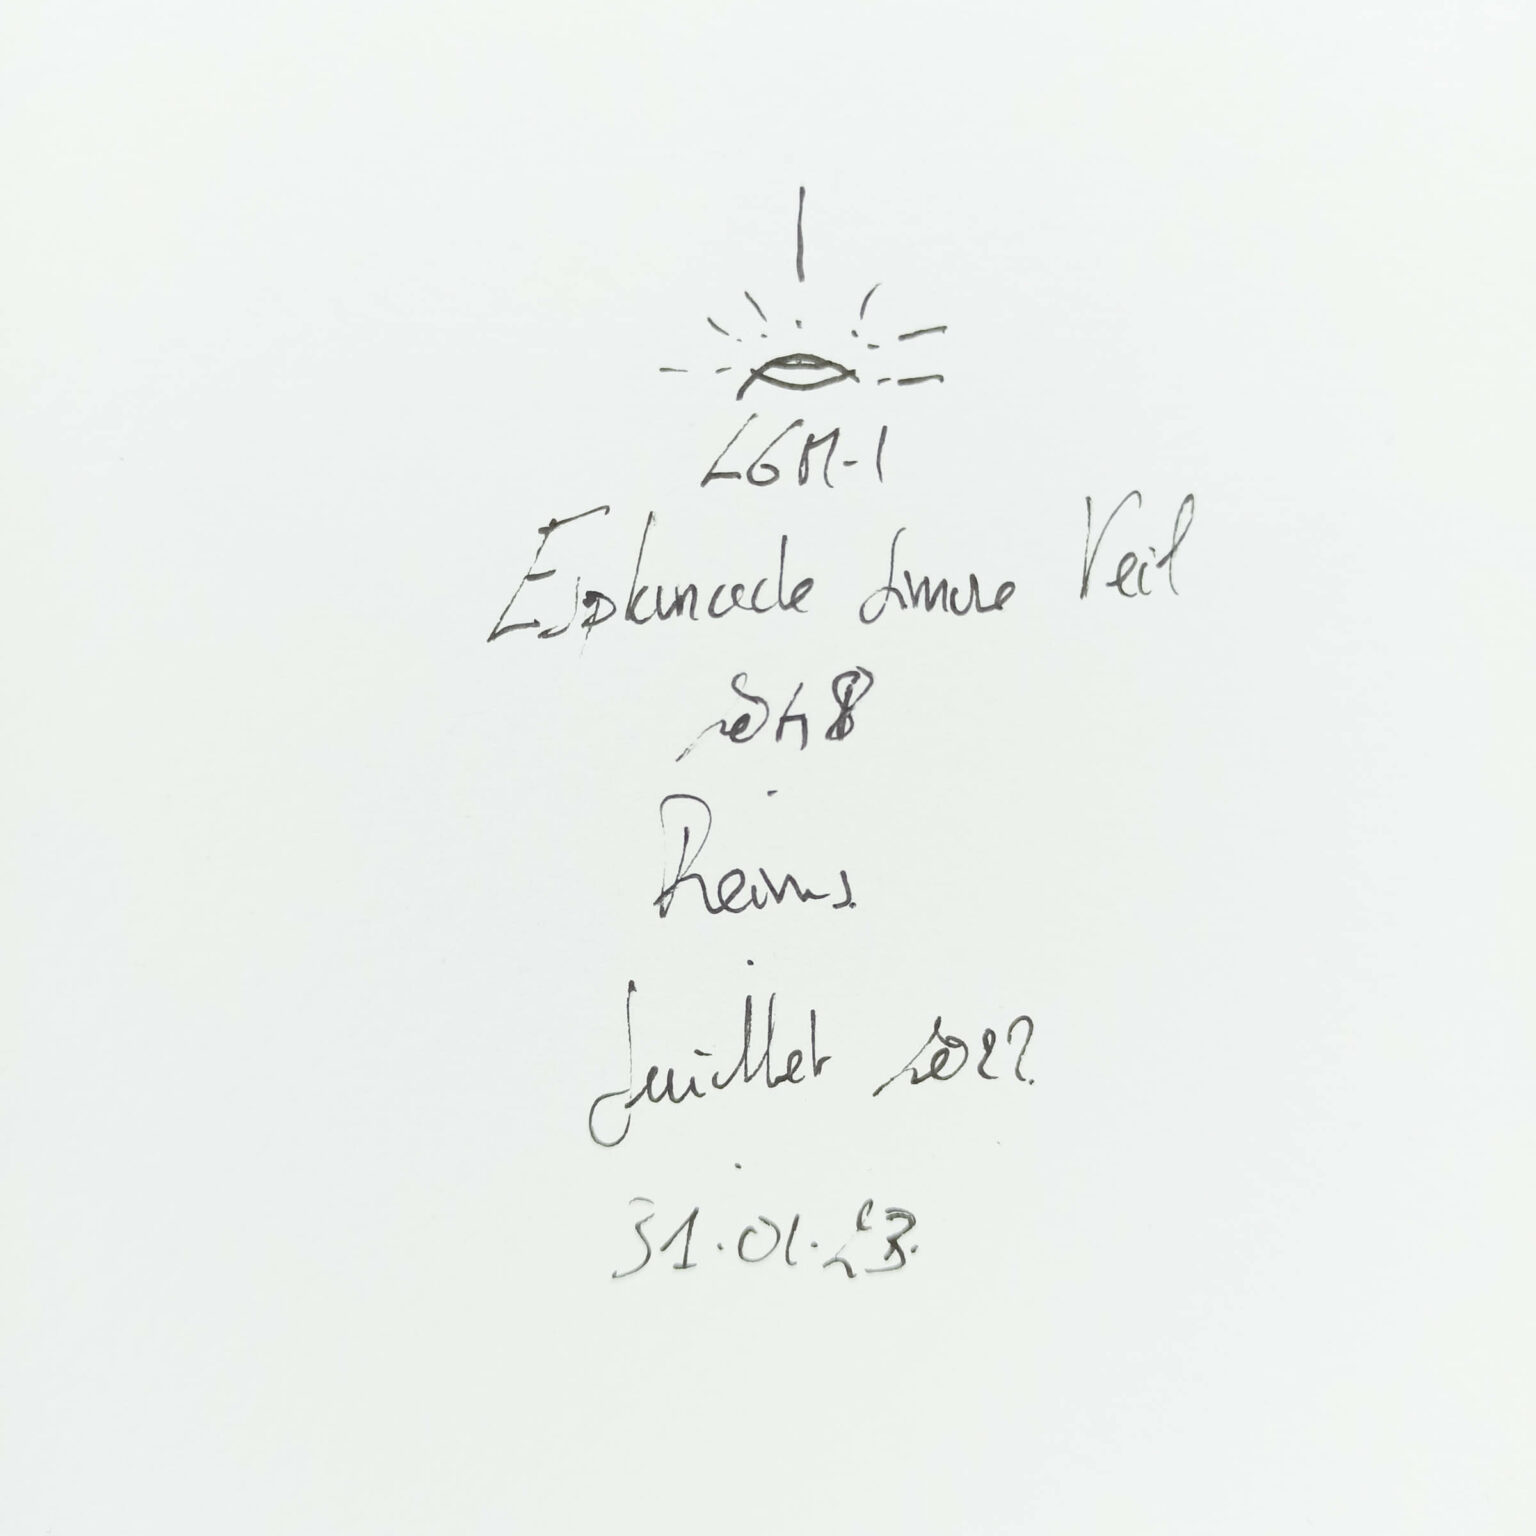 LGM-1
Esplanade Simone Veil
2048
Reims
Juillet 2022
31.01.23